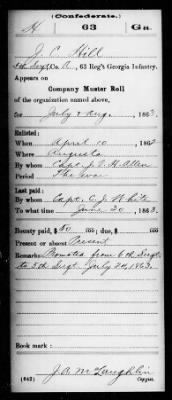 (Confederate.)
H 63 Ga.
J. C. Hill
5th Sergt, Co. C, 63 Reg't Georgia Infantry.
Appears on
Company Muster Roll
of the organization named above,
for July & Aug, 1863.
Enlisted:
When April 10, 1862
Where Augusta
By whom Capt. J. H. Allen
Period The war
Last paid:
By whom Capt. C. J. White
To what time June 30, 1863.
Bounty paid $ 50 100; due $ 100
Present or absent Present
Remarks: Promoted from 6th Sergt
to 5th Sergt July 20, 1863.
Book mark:
J. A. McLaughlin
(642) Copyist.